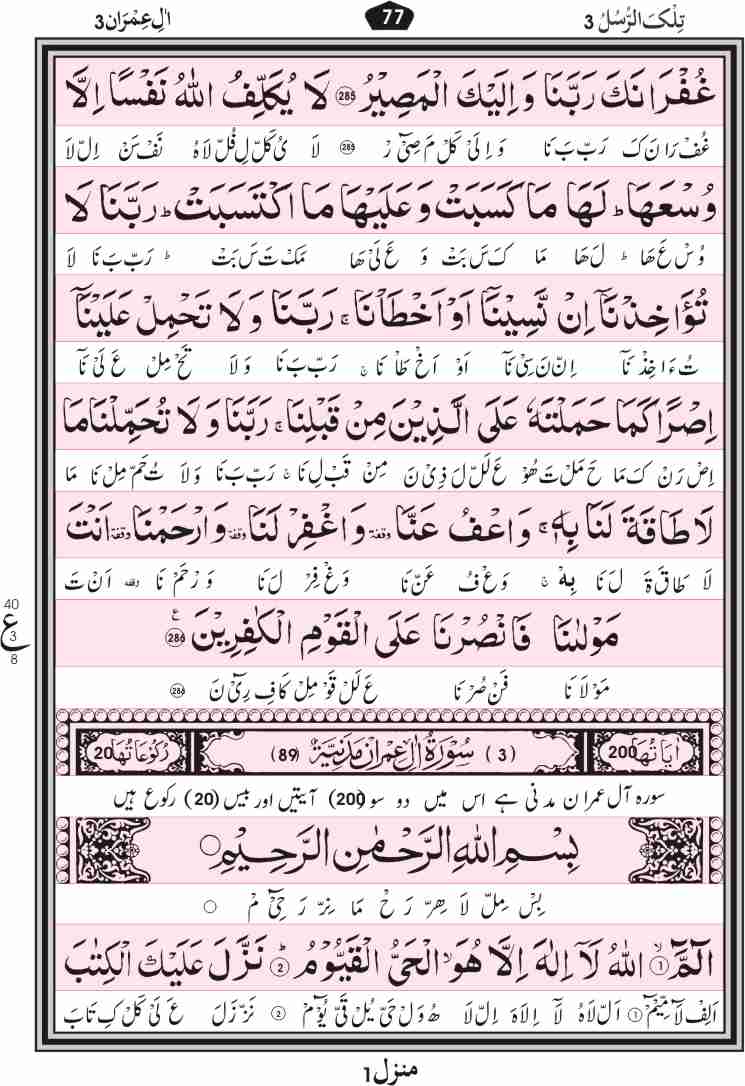 تِلْكَ الرُّسُلُ 3
77
اٰلِ عِمْرَان 3
غُفْرَانَكَ رَبَّنَا وَاِلَيْكَ الْمَصِيْرُ ۝285 لَا يُكَلِّفُ اللّٰهُ نَفْسًا اِلَّا
غُفْ رَا نَ كَ رَبّ بَ نَا وَ اِ لَىْ كَلْ مَ صِىْٓ رْ 285 لَا ىُ كَلّ لِ فُلّ لَا هُ نَفْ سَنْ اِلّ لَا
وُسْعَهَا ؕ لَهَا مَا كَسَبَتْ وَعَلَيْهَا مَا اكْتَسَبَتْ ؕ رَبَّنَا لَا
وُسْ عَ هَا ؕ لَ هَا مَا كَ سَ بَتْ وَ عَ لَىْ هَا مَكْ تَ سَ بَتْ ؕ رَبّ بَ نَا لَا
تُؤَاخِذْنَآ اِنْ نَّسِيْنَآ اَوْ اَخْطَاْنَا ۚ رَبَّنَا وَلَا تَحْمِلْ عَلَيْنَآ
تُ ءَا خِذْ نَآ اِنّ نَ سِىْ نَآ اَوْ اَخْ طَاْ نَا ۚ رَبّ بَ نَا وَ لَا تَحْ مِلْ عَ لَىْ نَآ
اِصْرًا كَمَا حَمَلْتَهٗ عَلَى الَّذِيْنَ مِنْ قَبْلِنَا ۚ رَبَّنَا وَلَا تُحَمِّلْنَا مَا
اِصْ رَنْ كَ مَا حَ مَلْ تَ هُوْ عَ لَلّ لَ ذِىْ نَ مِنْ قَبْ لِ نَا ۚ رَبّ بَ نَا وَ لَا تُ حَمّ مِلْ نَا مَا
لَا طَاقَةَ لَنَا بِهٖ ۚ وَاعْفُ عَنَّا وقفة وَاغْفِرْ لَنَا وقفة وَارْحَمْنَا وقفة اَنْتَ
لَا طَا قَ ةَ لَ نَا بِهٖ ۚ وَعْ فُ عَنّ نَا وَغْ فِرْ لَ نَا وَرْ حَمْ نَا وقفة اَنْ تَ
مَوْلٰىنَا فَانْصُرْنَا عَلَى الْقَوْمِ الْكٰفِرِيْنَ ۝286 ع
مَوْ لَا نَا فَنْ صُرْ نَا عَ لَلْ قَوْ مِلْ كَا فِ رِىْٓ نَ 286
40
ع
3
8
اٰيَاتُهَا 200
(3) سُوْرَةُ اٰلِ عِمْرٰنَ مَدَنِيَّةٌ (89)
رُكُوْعَاتُهَا 20
سورہ آل عمران مدنی ہے اس میں دو سو (200) آیتیں اور بیس (20) رکوع ہیں
بِسْمِ اللّٰهِ الرَّحْمٰنِ الرَّحِيْمِ ۝
بِسْ مِلّ لَا هِرّ رَحْ مَا نِرّ رَ حِىْٓ مْ ۝
الٓمّٓ ۙ ۝1 اللّٰهُ لَآ اِلٰهَ اِلَّا هُوَ ۙ الْحَىُّ الْقَيُّوْمُ ؕ ۝2 نَزَّلَ عَلَيْكَ الْكِتٰبَ
اَلِفْ لَآمّ مِّىْٓمْ 1 اَلّ لَا هُ لَآ اِ لَا هَ اِلّ لَا هُ وَلْ حَىّ يُلْ قَىّ يُوْٓمْ 2 نَزّ زَ لَ عَ لَىْ كَلْ كِ تَا بَ
منزل 1